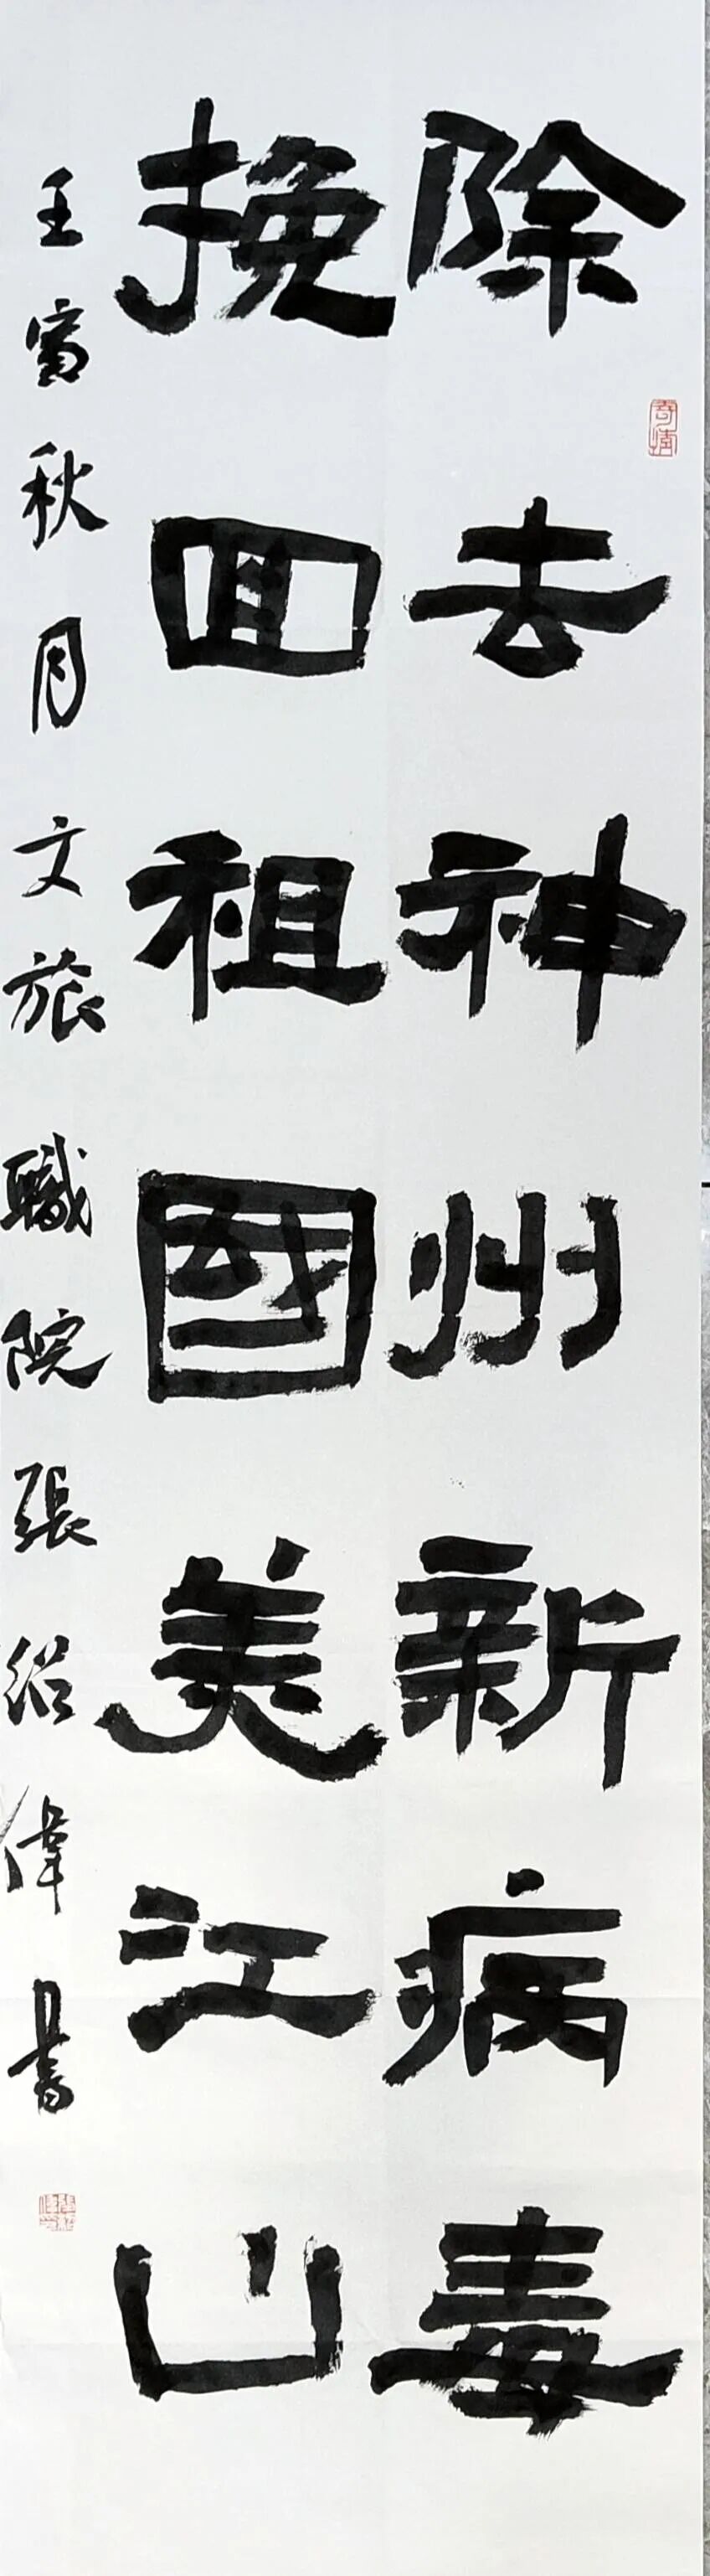 除去神州新病毒
挽回祖國美江山
壬寅秋月文旅職院張紹偉書